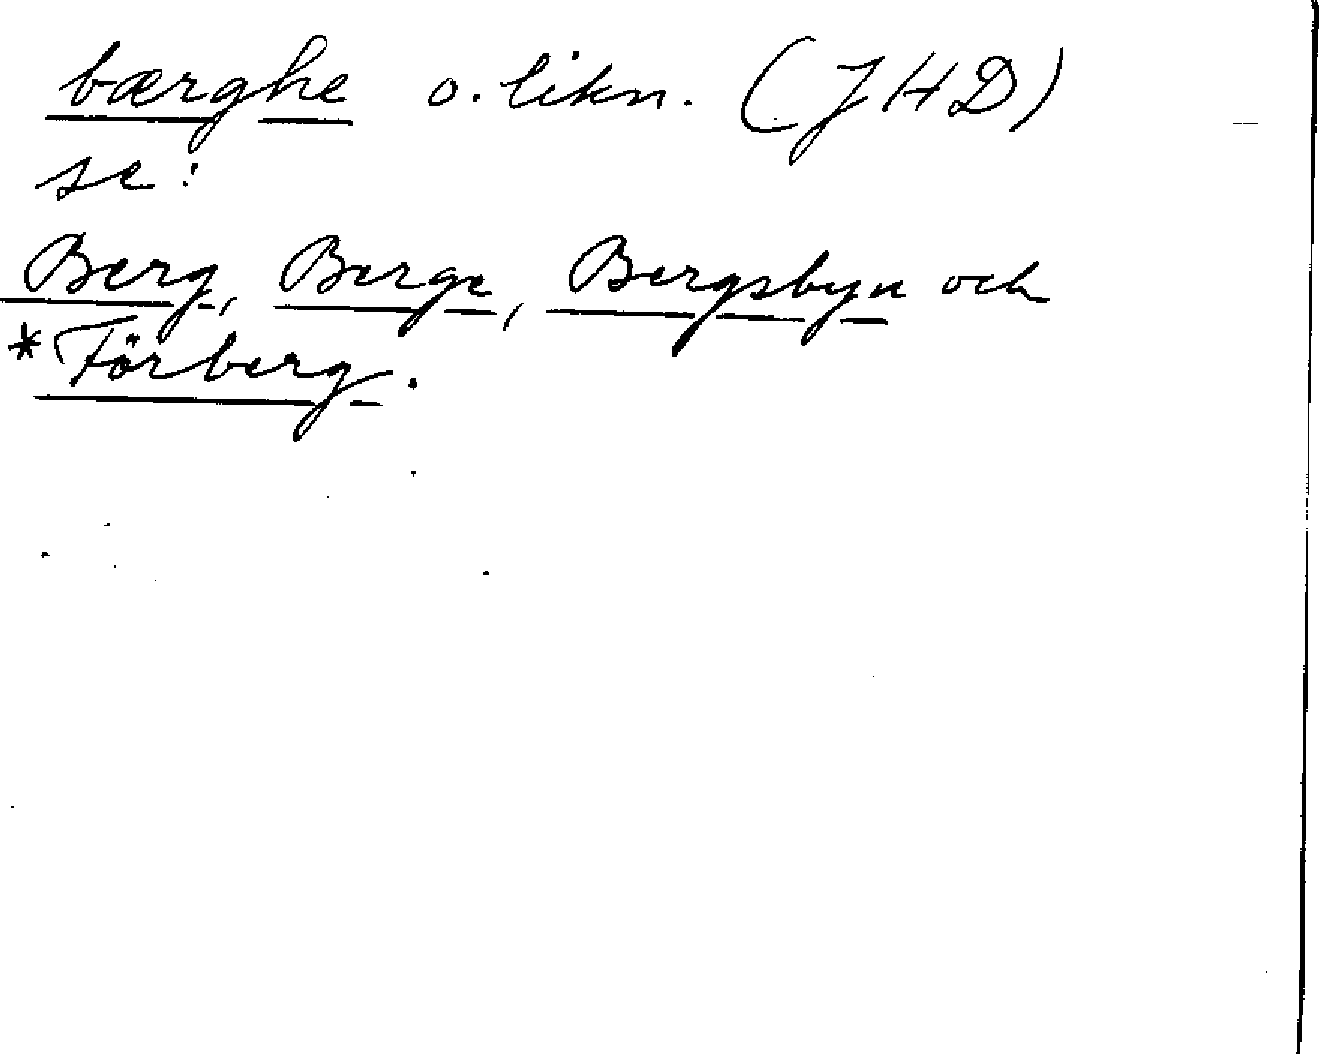 bærghe o. likn. (JHD)
se:
Berg, Berge, Bergsbyn och
*Förberg.